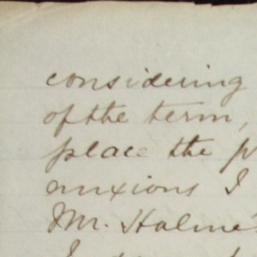 considering
of the term,
place the p
anxious I
Mr. Halme's